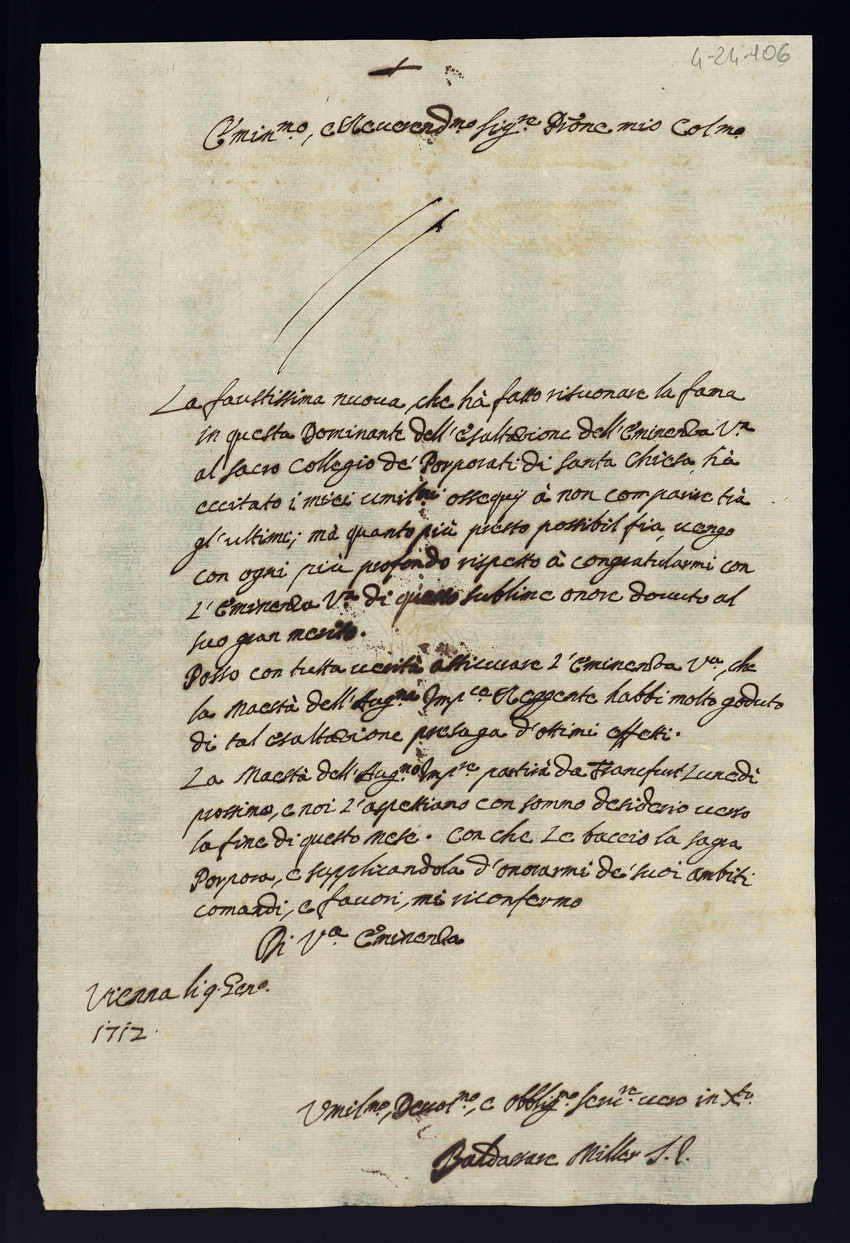 4-24-106
Emin.mo, e Reverend.mo Sig.re Prōne mio Colmo
La faustissima nuova, che hà fatto risuonare la fama
in questa Dominante dell'esaltazione dell'Eminenza V.ra
al sacro Collegio de' Porporati di Santa Chiesa, hà
eccitato i miei umil.mi ossequij à non comparire trà
gl'ultimi; mà quanto più presto possibil fia, vengo
con ogni più profondo rispetto à congratularmi con
L'Eminenza V.ra di questo sublime onore dovuto al
suo gran merito.
Posso con tutta verità assicurare L'Eminenza V.ra, che
la Maestà dell'Aug.ma Imp.ce Reggente habbi molto goduto
di tal esaltazione presaga d'ottimi effetti.
La Maestà dell'Aug.mo Imp.re partirà da Francfurt Lunedi
prossimo, e noi L'aspettiamo con sommo desiderio verso
la fine di questo Mese. Con che Le baccio la sagra
Porpora, e supplicandola d'onorarmi de' suoi ambiti
comandi, e favori, mi riconfermo
Di V.ra Eminenza
Vienna li 9. Gen.o
1712.
Umil.mo, Devot.mo, e Obblig.mo Serv.re vero in X.to
Baldassare Miller S.J.